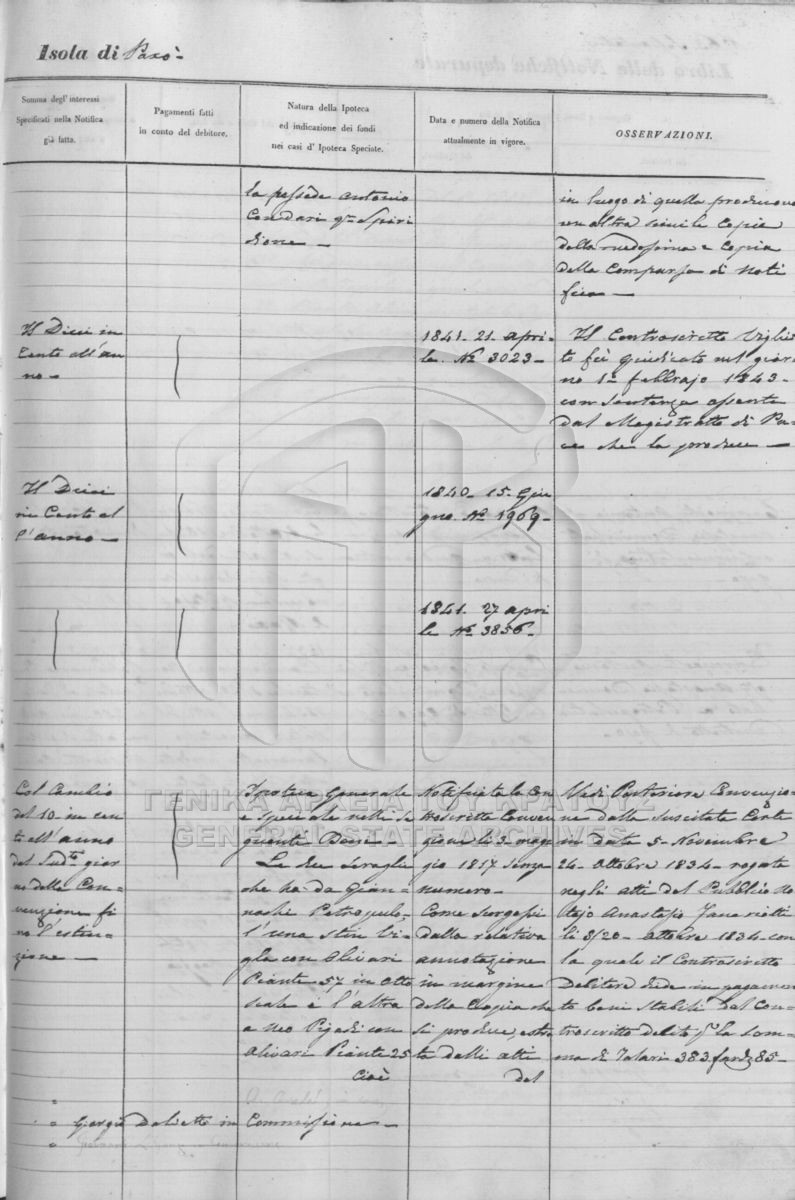 Isola di Paxò -
Somma degl' interessi
Specificati nella Notifica
già fatta.
Pagamenti fatti
in conto del debitore.
Natura della Ipoteca
ed indicazione dei fondi
nei casi d' Ipoteca Speciale.
Data e numero della Notifica
attualmente in vigore.
OSSERVAZIONI.
la possède Antonio
Condari qm Spiri
dione -
in luogo di quella producono
un altra simile Copia
della medesima e Copia
della Comparsa di Noti
fica -
Il Dieci in
Cento all'an
no -
1841. 21. Apri-
le. No 3023 -
Il Controscritto Vigliet
to fù giudicato nel gior
no 1o febbrajo 1843 -
con Sentenza assente
dal Magistrato di Pa-
ce che la produce -
Il Dieci
in Cento al
l'anno -
1840. 15. Giu
gno. No 1969 -
1841. 27 Apri
le No 3856 -
Col Cambio
del 10. in cen
to all'anno
del Sudto gior
no della Con-
venzione fi
no l'estin-
zione -
Ipoteca Generale
e speciale nelli se
guenti Beni -
Le due Seraglie
che ha da Gian-
nachi Petropulo,
l'una stin Vi-
gla con Olivari
Piante 57 in Otto
e l'altra
a Neo Pigadi con
Olivari Piante 25
Cioè
Notificata la Con
troscritta Conven
zione li 3. mag
gio 1817 senza
numero -
Come Scorgesi
dalla relativa
annotazione
in margine
della Copia che
si produce, estrat
ta dalli atti
del
Vedi Posteriore Convenzio-
ne dalla Suscitata Corte
in data 5 - Novembre
24 - Ottobre 1834 - rogata
negli atti del Pubblico No
tajo Anastasio
li 8/20 - Ottobre 1834 - con
la quale il Controscritto
Debitore diede in pagamen
to beni stabili dal Con-
troscritto debito pr la som-
ma di Talari 383. 85 -
Giorgio in Commissione -
ΓΕΝΙΚΑ ΑΡΧΕΙΑ ΤΟΥ ΚΡΑΤΟΥΣ
GENERAL STATE ARCHIVES